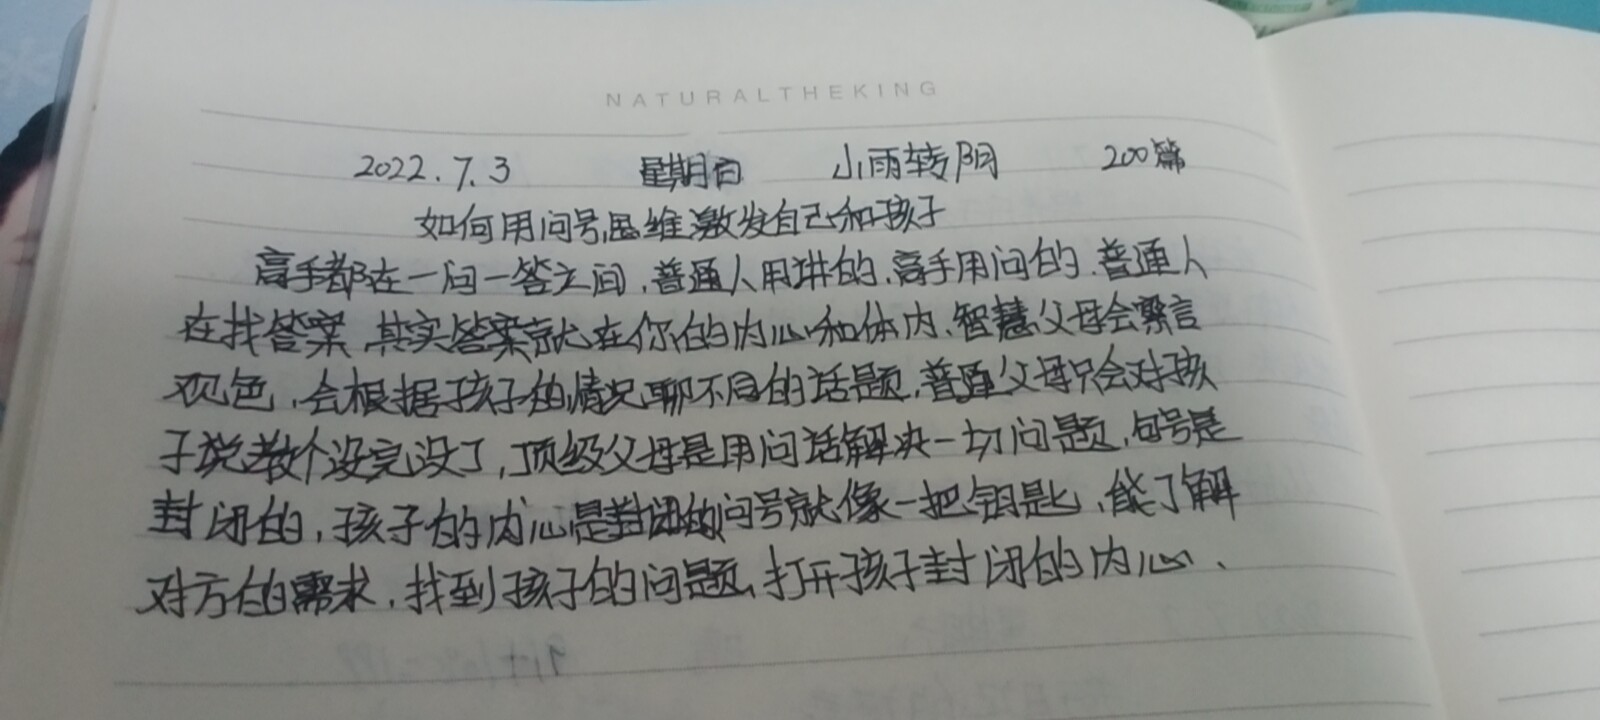 NATURALTHEKING
2022.7.3 星期日 小雨转阴 200篇
如何用问号思维激发自己和孩子
高手都在一问一答之间,普通人用讲的,高手用问的,普通人
在找答案,其实答案就在你的内心和体内,智慧父母会察言
观色,会根据孩子的情况聊不同的话题,普通父母只会对孩
子说教个没完没了,顶级父母是用问话解决一切问题,句号是
封闭的,孩子的内心是封闭的问号就像一把钥匙,能了解
对方的需求,找到孩子的问题,打开孩子封闭的内心、